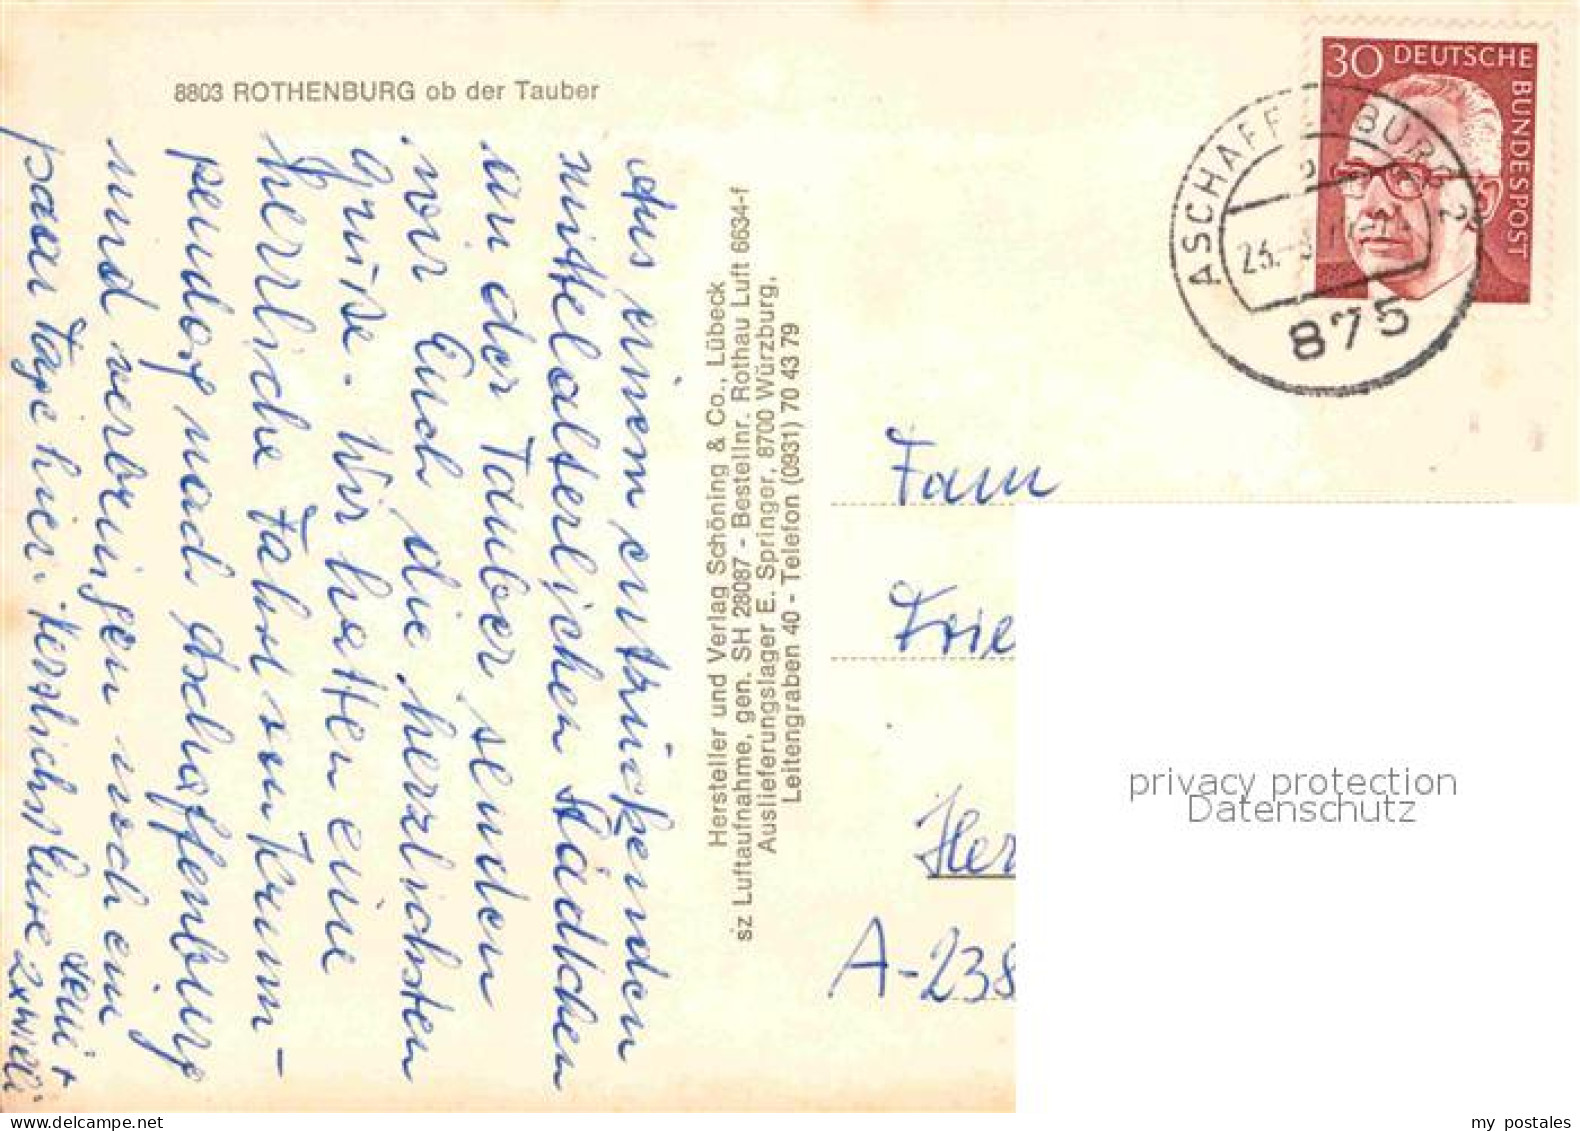 8803 ROTHENBURG ob der Tauber
Aus einem entzückenden
mittelalterlichen Städtchen
an der Tauber senden
wir Euch die herzlichsten
Grüße. Wir hatten eine
herrliche Fahrt von Krum-
pendorf nach Aschaffenburg
und verbringen noch ein
paar Tage hier. Herzlichst Eure
2x Willi
Hersteller und Verlag Schöning & Co., Lübeck
sz Luftaufnahme, gen. SH 28087 - Bestellnr. Rothau Luft 6634-f
Auslieferungslager E. Springer, 8700 Würzburg,
Leitengraben 40 - Telefon (0931) 70 43 79
30 DEUTSCHE
BUNDESPOST
ASCHAFFENBURG 2
875
Fam
Krie
Her
A-238
privacy protection
Datenschutz
my postales